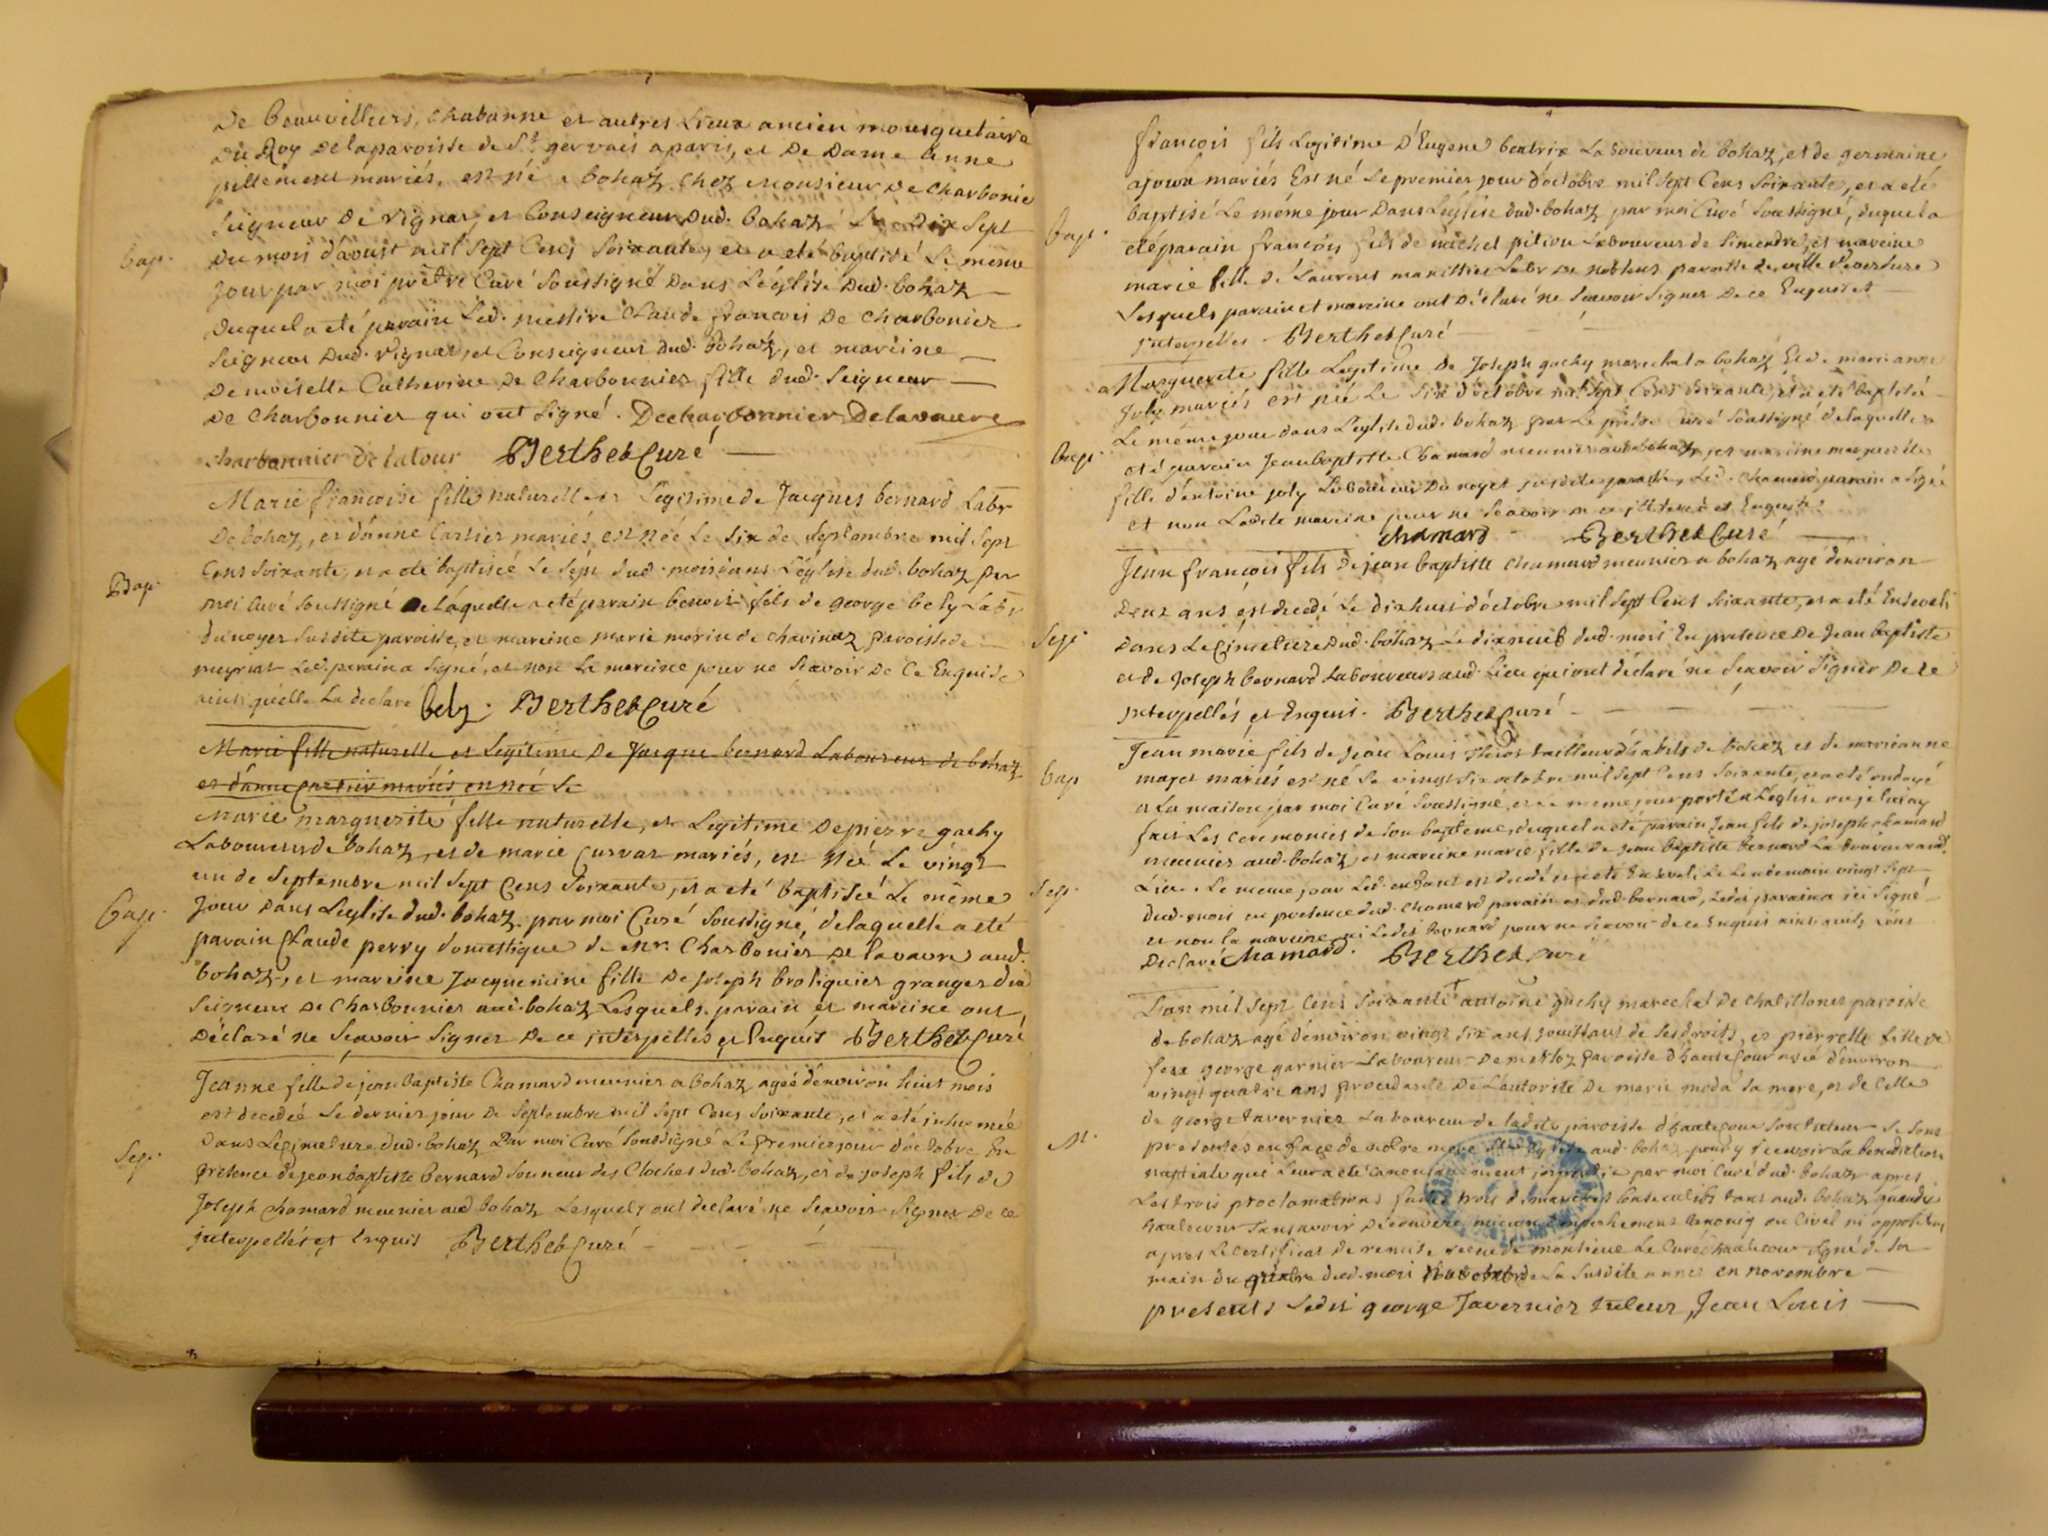 De beauvilliers, chabanne et autres Lieux ancien mousquetaire
Du Roy De la paroisse de St gervais a paris, et De Dame Anne
mariés, est né a bohaz chez Monsieur De charbonie
Seigneur De vignas, et Conseigneur Dud. bohaz Le dix Sept
Bap.
Du mois d'aoust mil Sept Cens Soixante, et a eté baptisé Le même
jour par moi prêtre Curé Soussigné Dans L'église Dud. bohaz
Duquel a eté parain Led. messire Claude françois De charbonier
Seigneur Dud. vignas, et Conseigneur dud. bohaz, et mareine
Demoiselle Catherine De Charbonnier fille dud. Seigneur
De Charbonnier qui ont Signé. Decharbonnier Delavaure
charbonnier De latour Berthet Curé
Marie françoise fille naturelle et Legitime de Jacques bernard Labr
De bohaz, et d'anne Cartier mariés, est née Le Six de Septembre mil Sept
Bap.
Cens Soixante, et a eté baptiseé Le Sept dud. mois dans L'église dud. bohaz par
moi Curé Soussigné De laquelle a eté parain benoit fils de george bely Labr
du noyer Susdite paroisse, et mareine marie morin de chavinaz paroisse de
meyriat Led. parain a Signé, et non La mareine pour ne Sçavoir De Ce Enquise
ainsi quélle La declaré bely. Berthet Curé
Marie fille naturelle et Legitime De Jacque bernard Laboureur de bohaz
et d'anne Cartier mariés est née Le
Marie marguerite fille naturelle, et Legitime De pierre gachy
Laboureur de bohaz, et de marie Curvat mariés, est Née Le vingt
un de Septembre mil Sept Cens Soixante, et a eté baptisée Le même
Bap.
jour Dans L'eglise dud. bohaz par moi Curé Soussigné, de laquelle a eté
parain Claude perry domestique de mr. Charbonier De lavaure aud.
bohaz, et mareine Jacquemine fille De joseph broliquier granger du
Seigneur De Charbonnier aud. bohaz Lesquels parain et mareine ont
Déclaré ne Sçavoir Signer De ce interpellés et Enquis Berthet Curé
Jeanne fille de jean baptiste Chamard meunier a bohaz ageé d'environ huit mois
est decedée Le dernier jour De Septembre mil Sept Cens Soixante, et a eté inhumée
Sep.
Dans Le Cimetiere Dud. bohaz Par moi Curé Soussigné Le premier jour d'octobre En
présence de jean baptiste bernard Sonneur des Cloches dud. bohaz, et de joseph fils de
Joseph chamard meunier aud. bohaz Lesquels ont declaré ne Sçavoir Signer De ce
interpellés et Enquis Berthet Curé
françois fils Legitime D'Eugene beatrix Laboureur de bohaz, et de germaine
mariés Est né Le premier jour d'octobre mil Sept Cens Soixante, et a eté
baptisé Le même jour Dans L'église dud. bohaz par moi Curé Soussigné, duquel a
Bap.
eté parain françois fils de michel pitiou Laboureur de Simandre, et mareine
marie fille de Laurent Labr De paroisse de
Lesquels parain et mareine ont Déclaré ne Sçavoir Signer De ce Enquis et
interpellés Berthet Curé
Marguerite fille Legitime De Joseph gachy marechal a bohaz Et de marianne
joly mariés est née Le Six d'octobre mil Sept Cens Soixante, et a eté baptisée
Le même jour dans L'eglise dud. bohaz par Le prêtre Curé Soussigné de laquelle a
Bap.
eté parain Jean baptiste Chamard meunier aud. bohaz, et mareine marguerite
fille d'antoine joly Laboureur Du noyer susdite paroisse, Led. Chamard parain a Signé
et non Ladite mareine pour ne Sçavoir et Enquise
chamard Berthet Curé
Jean françois fils de jean baptiste chamard meunier a bohaz agé d'environ
deux ans est decedé Le dixhuit d'octobre mil Sept Cens Soixante, et a eté Enseveli
Sep.
dans Le Cimetiere Dud. bohaz Le dixneuf dud. mois En presence De Jean baptiste
et de Joseph bernard Laboureurs aud. Lieu qui ont déclaré ne Sçavoir Signer De ce
interpellés et Enquis. Berthet Curé
Jean marie fils de jean Louis tailleur d'habits de bohaz et de marianne
Bap
mariés est né Le vingt Six octobre mil Sept Cens Soixante, et a eté ondoyé
a La maison par moi Curé Soussigné, et Le meme jour porté a L'église ou je lui ay
fait Les Ceremonies de Son baptême, duquel a eté parain Jean fils de joseph chamard
meunier aud. bohaz, et mareine marie fille de Jean Baptiste bernard Laboureur aud.
Sep.
Lieu. Le meme jour Led. enfant est decedé et a eté Enseveli Le Lendemain vingt Sept
dud. mois en presence dud. Chamard parain et dud. bernard, Ledit parain a ici Signé
et non la mareine ni Ledit bernard pour ne Sçavoir de ce Enquis ainsi qu'ils L'ont
Declaré Chamard. Berthet Curé
L'an mil Sept Cens Soixante antoine gachy marechal de chatillonet paroisse
de bohaz agé d'environ vingt Six ans jouissant de Ses droits, et pierrette fille de
feu george garnier Laboureur De paroisse d'hautecour agée d'environ
vingt quatre ans procedante De L'autorité De marie moda Sa mere, et de Celle
de george tavernier Laboureur de ladite paroisse d'hautecour Son tuteur Se Sont
M.
presentés en face de notre mere Ste Eglise aud. bohaz pour y recevoir La benediction
nuptiale qui Leur a eté Canoniquement impartie par moi Curé dud. bohaz apres
Les trois proclamations faites trois dimanches consecutifs tant aud. bohaz qu'audit
hautecour Sans avoir Découvert aucun Empechement Canoniq ou Civil ni opposition
apres Le certificat de remise de monsieur Le Curé d'hautecour Signé de Sa
main du dud. mois de La Susdite année en novembre
presents Ledit george Tavernier tuteur, Jean Louis